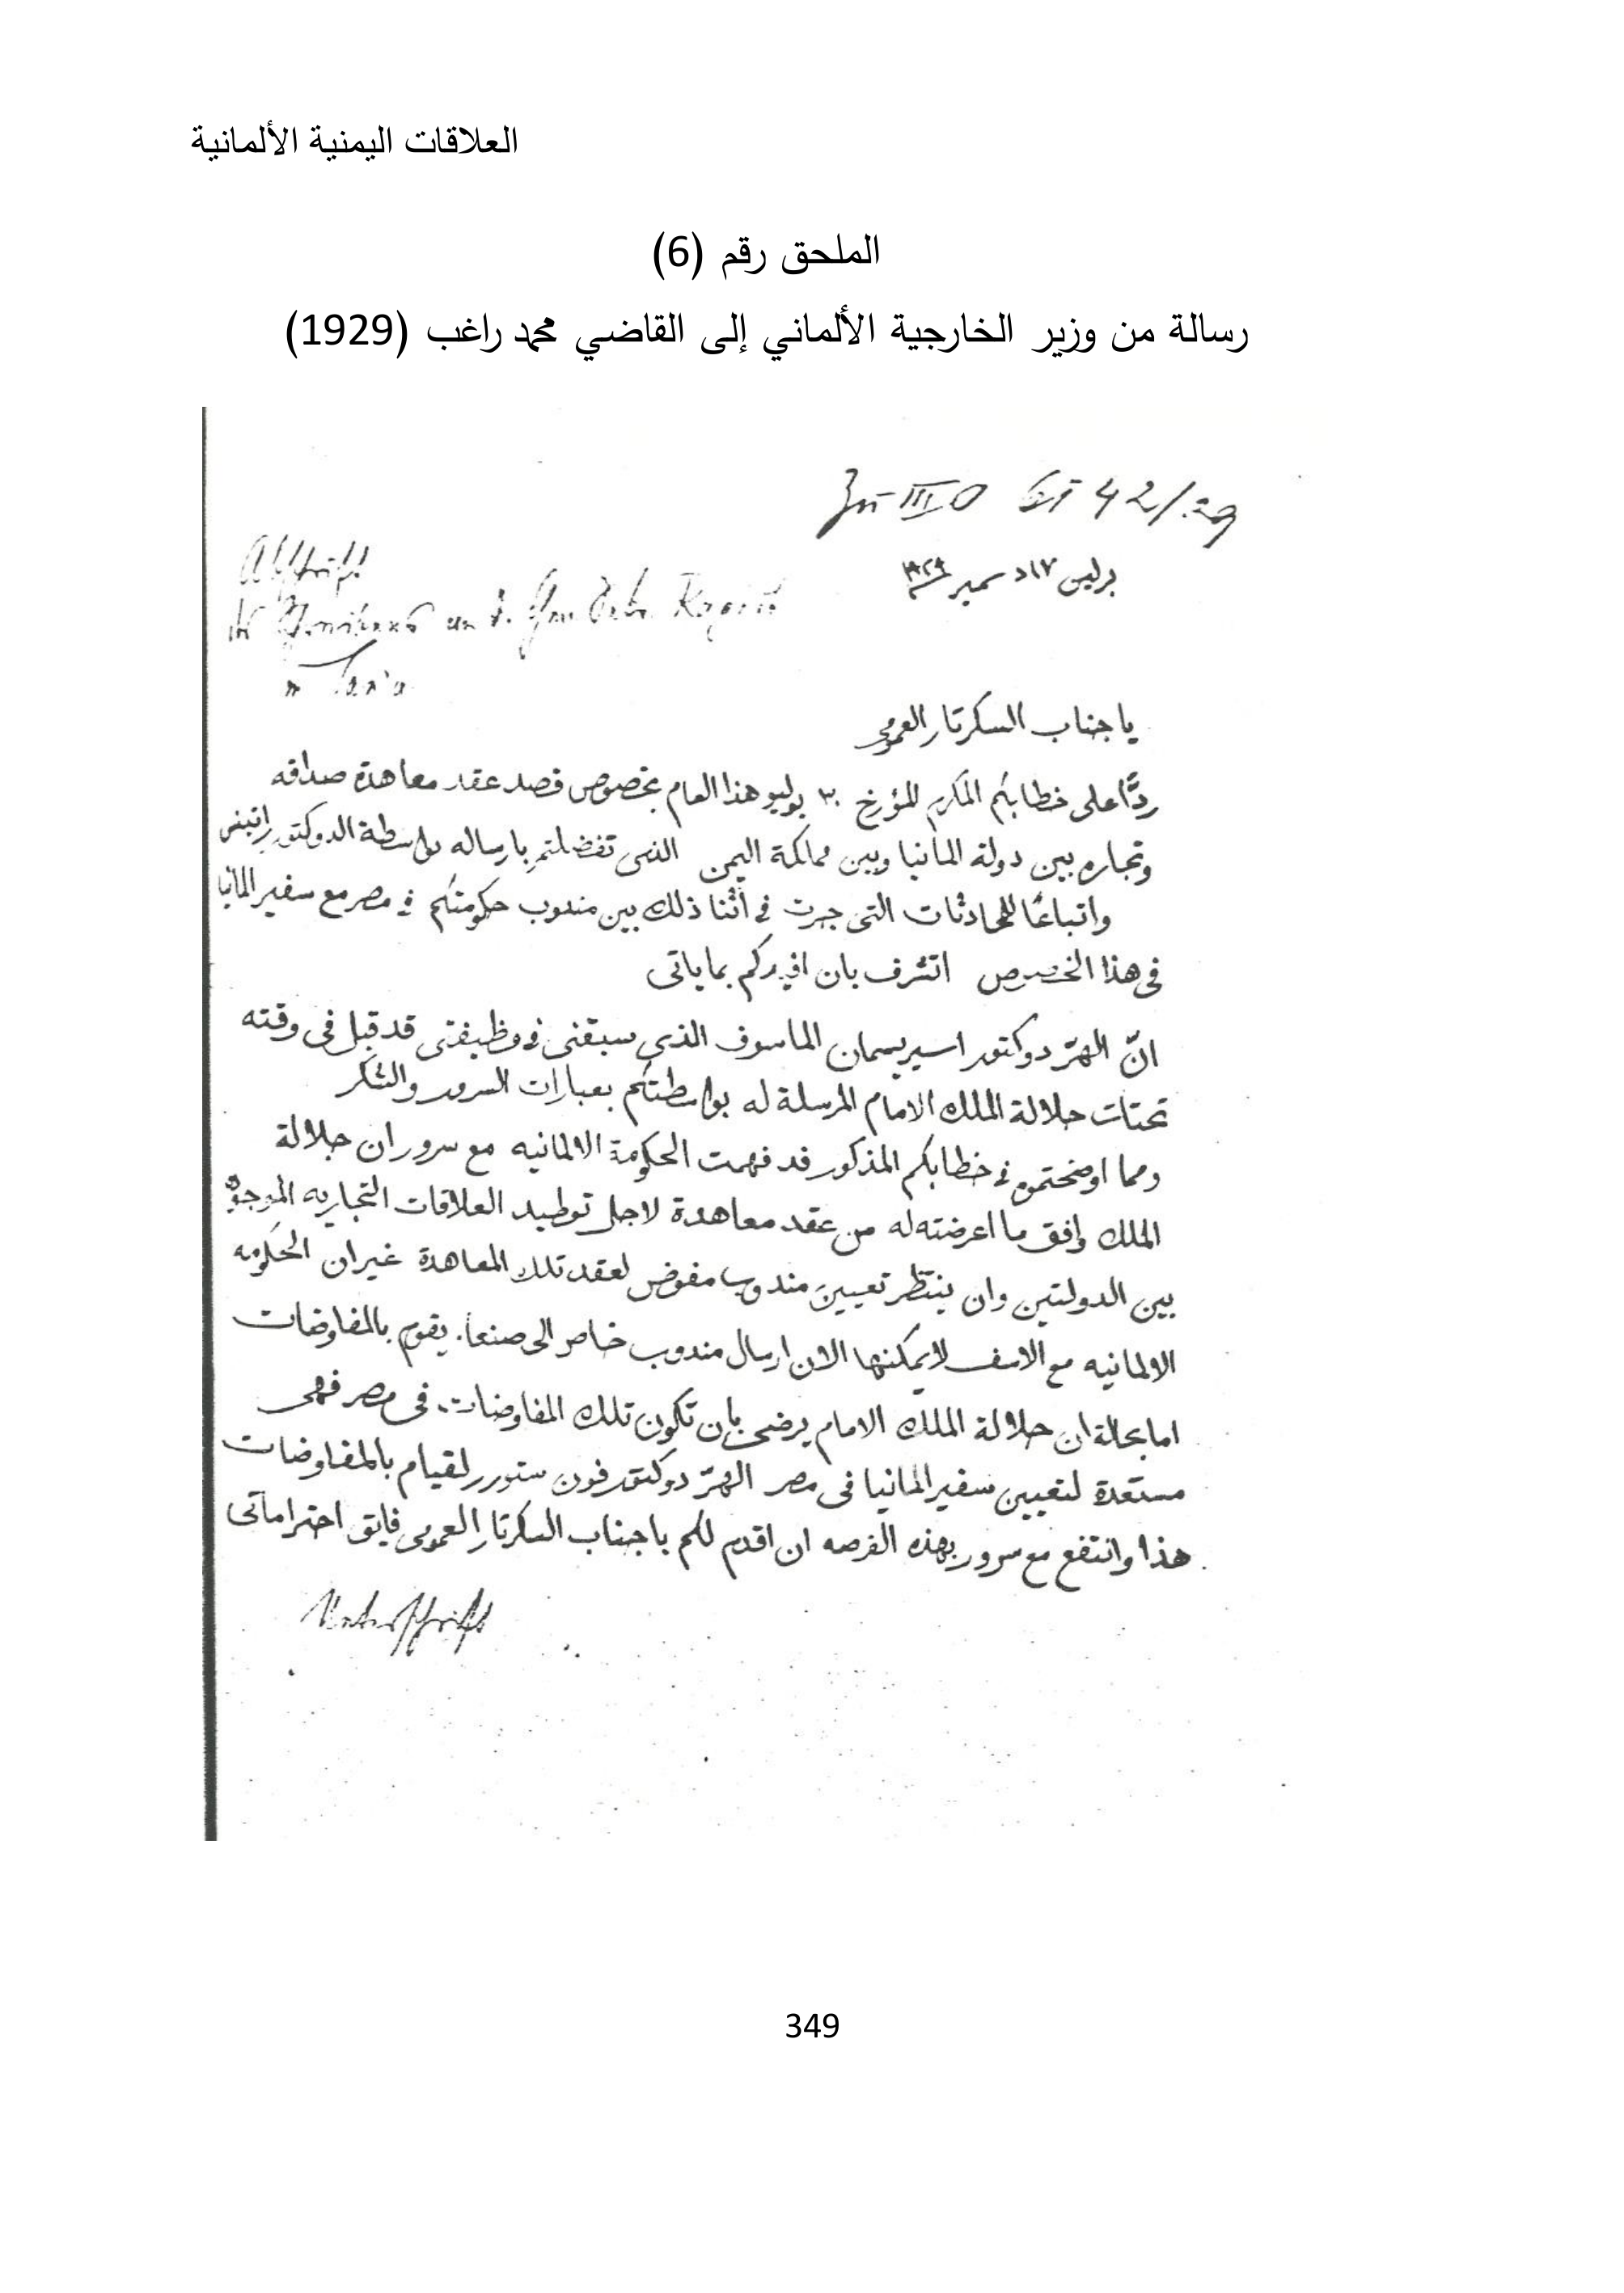 العلاقات اليمنية الألمانية
الملحق رقم (6)
رسالة من وزير الخارجية الألماني إلى القاضي محمد راغب (1929)
Zu III O 42/29
برلين ١٧ دسمبر ١٩٢٩
Abschrift
Ragib
Sana
يا جناب السكرتار العمومى
ردًّا على خطابكم المكرم المؤرخ ٣٠ يوليو هذا العام بخصوص قصد عقد معاهدة صداقه
وتجاره بين دولة المانيا وبين مملكة اليمن الذى تفضلتم بارساله بواسطة الدوكتور راتينس
واتباعًا للمحادثات التى جرت فى أثنا ذلك بين مندوب حكومتكم فى مصر مع سفير المانيا
فى هذا الخصوص اتشرف بان افيدكم بما ياتى
انّ الهرّ دوكتور اسيريسمان الماسوف الذى سبقنى فى وظيفتى قد قبل فى وقته
تحتات جلالة الملك الامام المرسلة له بواسطتكم بعبارات السرور والشكر
ومما اوضحتموه فى خطابكم المذكور قد فهمت الحكومة الالمانيه مع سرور ان جلالة
الملك وافق ما اعرضته له من عقد معاهدة لاجل توطيد العلاقات التجاريه الموجودة
بين الدولتين وان ينتظر تعيين مندوب مفوض لعقد تلك المعاهدة غير ان الحكومه
الالمانيه مع الاسف لا يمكنها الان ارسال مندوب خاص الى صنعا. يقوم بالمفاوضات
اما بحالة ان جلالة الملك الامام يرضى بان تكون تلك المفاوضات فى مصر فهى
مستعدة لتعيين سفير المانيا فى مصر الهرّ دوكتور فون ستورر لقيام بالمفاوضات
هذا وانتفع مع سرور بهذه الفرصه ان اقدم لكم يا جناب السكرتار العمومى فايق احتراماتى
Unterschrift
349